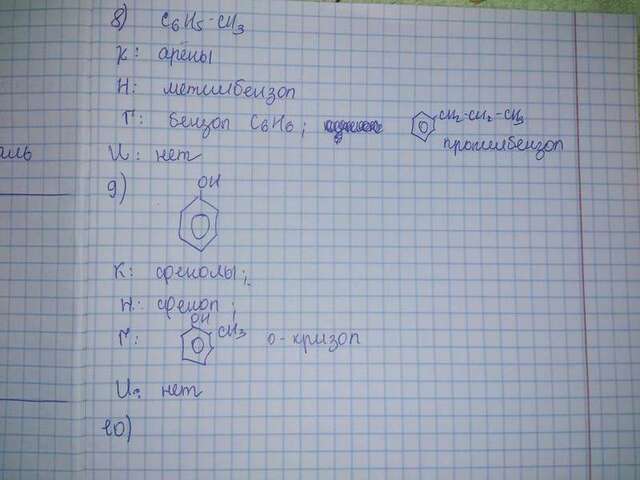 8) C6H5-CH3
К: арены
Н: метилбензол
Г: бензол C6H6; CH2-CH2-CH3
пропилбензол
аль
И: нет
9) OH
К: фенолы;
Н: фенол;
OH
Г: CH3 о-кризол
И: нет
10)